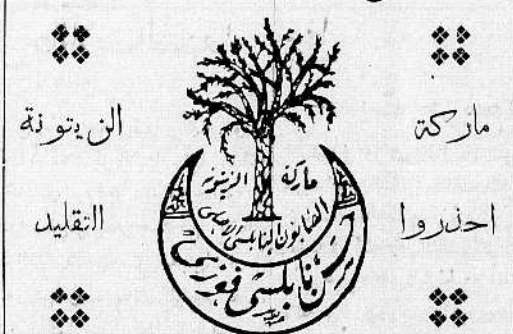 ماركة الزيتونة
احذروا التقليد
ماركة الزيتون
الصابون النابلسي الاصلي
نابلسي فوزي